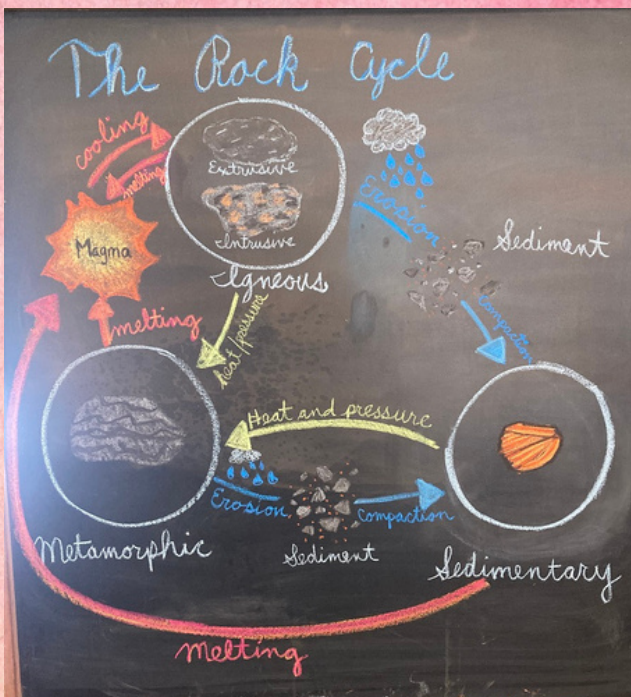 The Rock Cycle
cooling
melting
Extrusive
Intrusive
Igneous
Magma
Erosion
Sedimant
compaction
melting
heat/pressure
Heat and pressure
Erosion
Sediment
Compaction
Metamorphic
Sedimentary
Melting